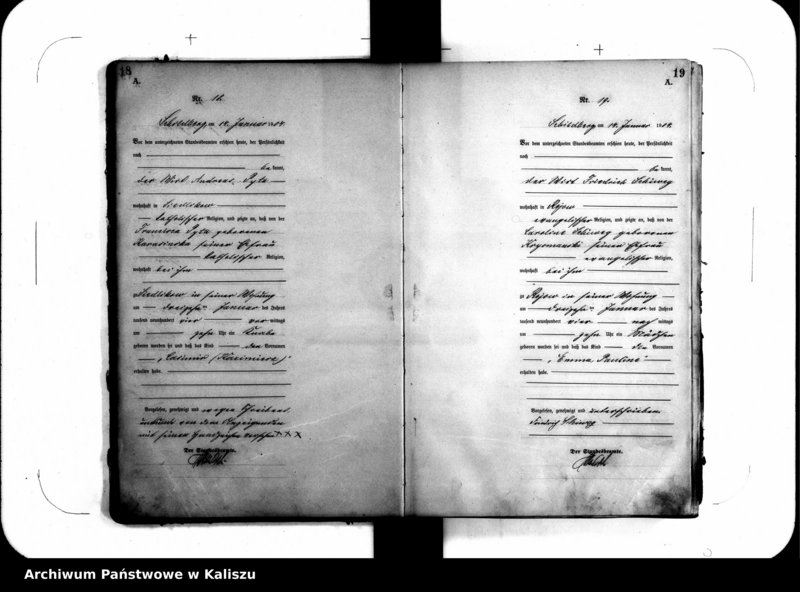 18
A.
Nr. 18.
Schildberg, am 18. Januar 1904.
Vor dem unterzeichneten Standesbeamten erschien heute, der Persönlichkeit
nach
be kannt,
der Wirt Andreas
wohnhaft in Siedlikow
katholischer Religion, und zeigte an, daß von der
geborenen
seiner Ehefrau
katholischer Religion,
wohnhaft bei ihm
zu Siedlikow in seiner Wohnung
am Januar des Jahres
tausend neunhundert vier vor mittags
um zehn Uhr ein Knabe
geboren worden sei und daß das Kind den Vornamen
"Casimir (Kazimierz)"
erhalten habe.
Vorgelesen, genehmigt und wegen Schreibens
unkunde von dem Anzeigenden
mit seinem Handzeichen versehen. X X X
Der Standesbeamte.
19
A.
Nr. 19.
Schildberg, am 18. Januar 1904.
Vor dem unterzeichneten Standesbeamten erschien heute, der Persönlichkeit
nach
be kannt,
der Wirt Friedrich
wohnhaft in Rojow
evangelischer Religion, und zeigte an, daß von der
Karoline geborenen
seiner Ehefrau
evangelischer Religion,
wohnhaft bei ihm
zu Rojow in seiner Wohnung
am Januar des Jahres
tausend neunhundert vier nach mittags
um zehn Uhr ein Mädchen
geboren worden sei und daß das Kind den Vornamen
"Emma Pauline"
erhalten habe.
Vorgelesen, genehmigt und unterschrieben
Friedrich
Der Standesbeamte.
Archiwum Państwowe w Kaliszu